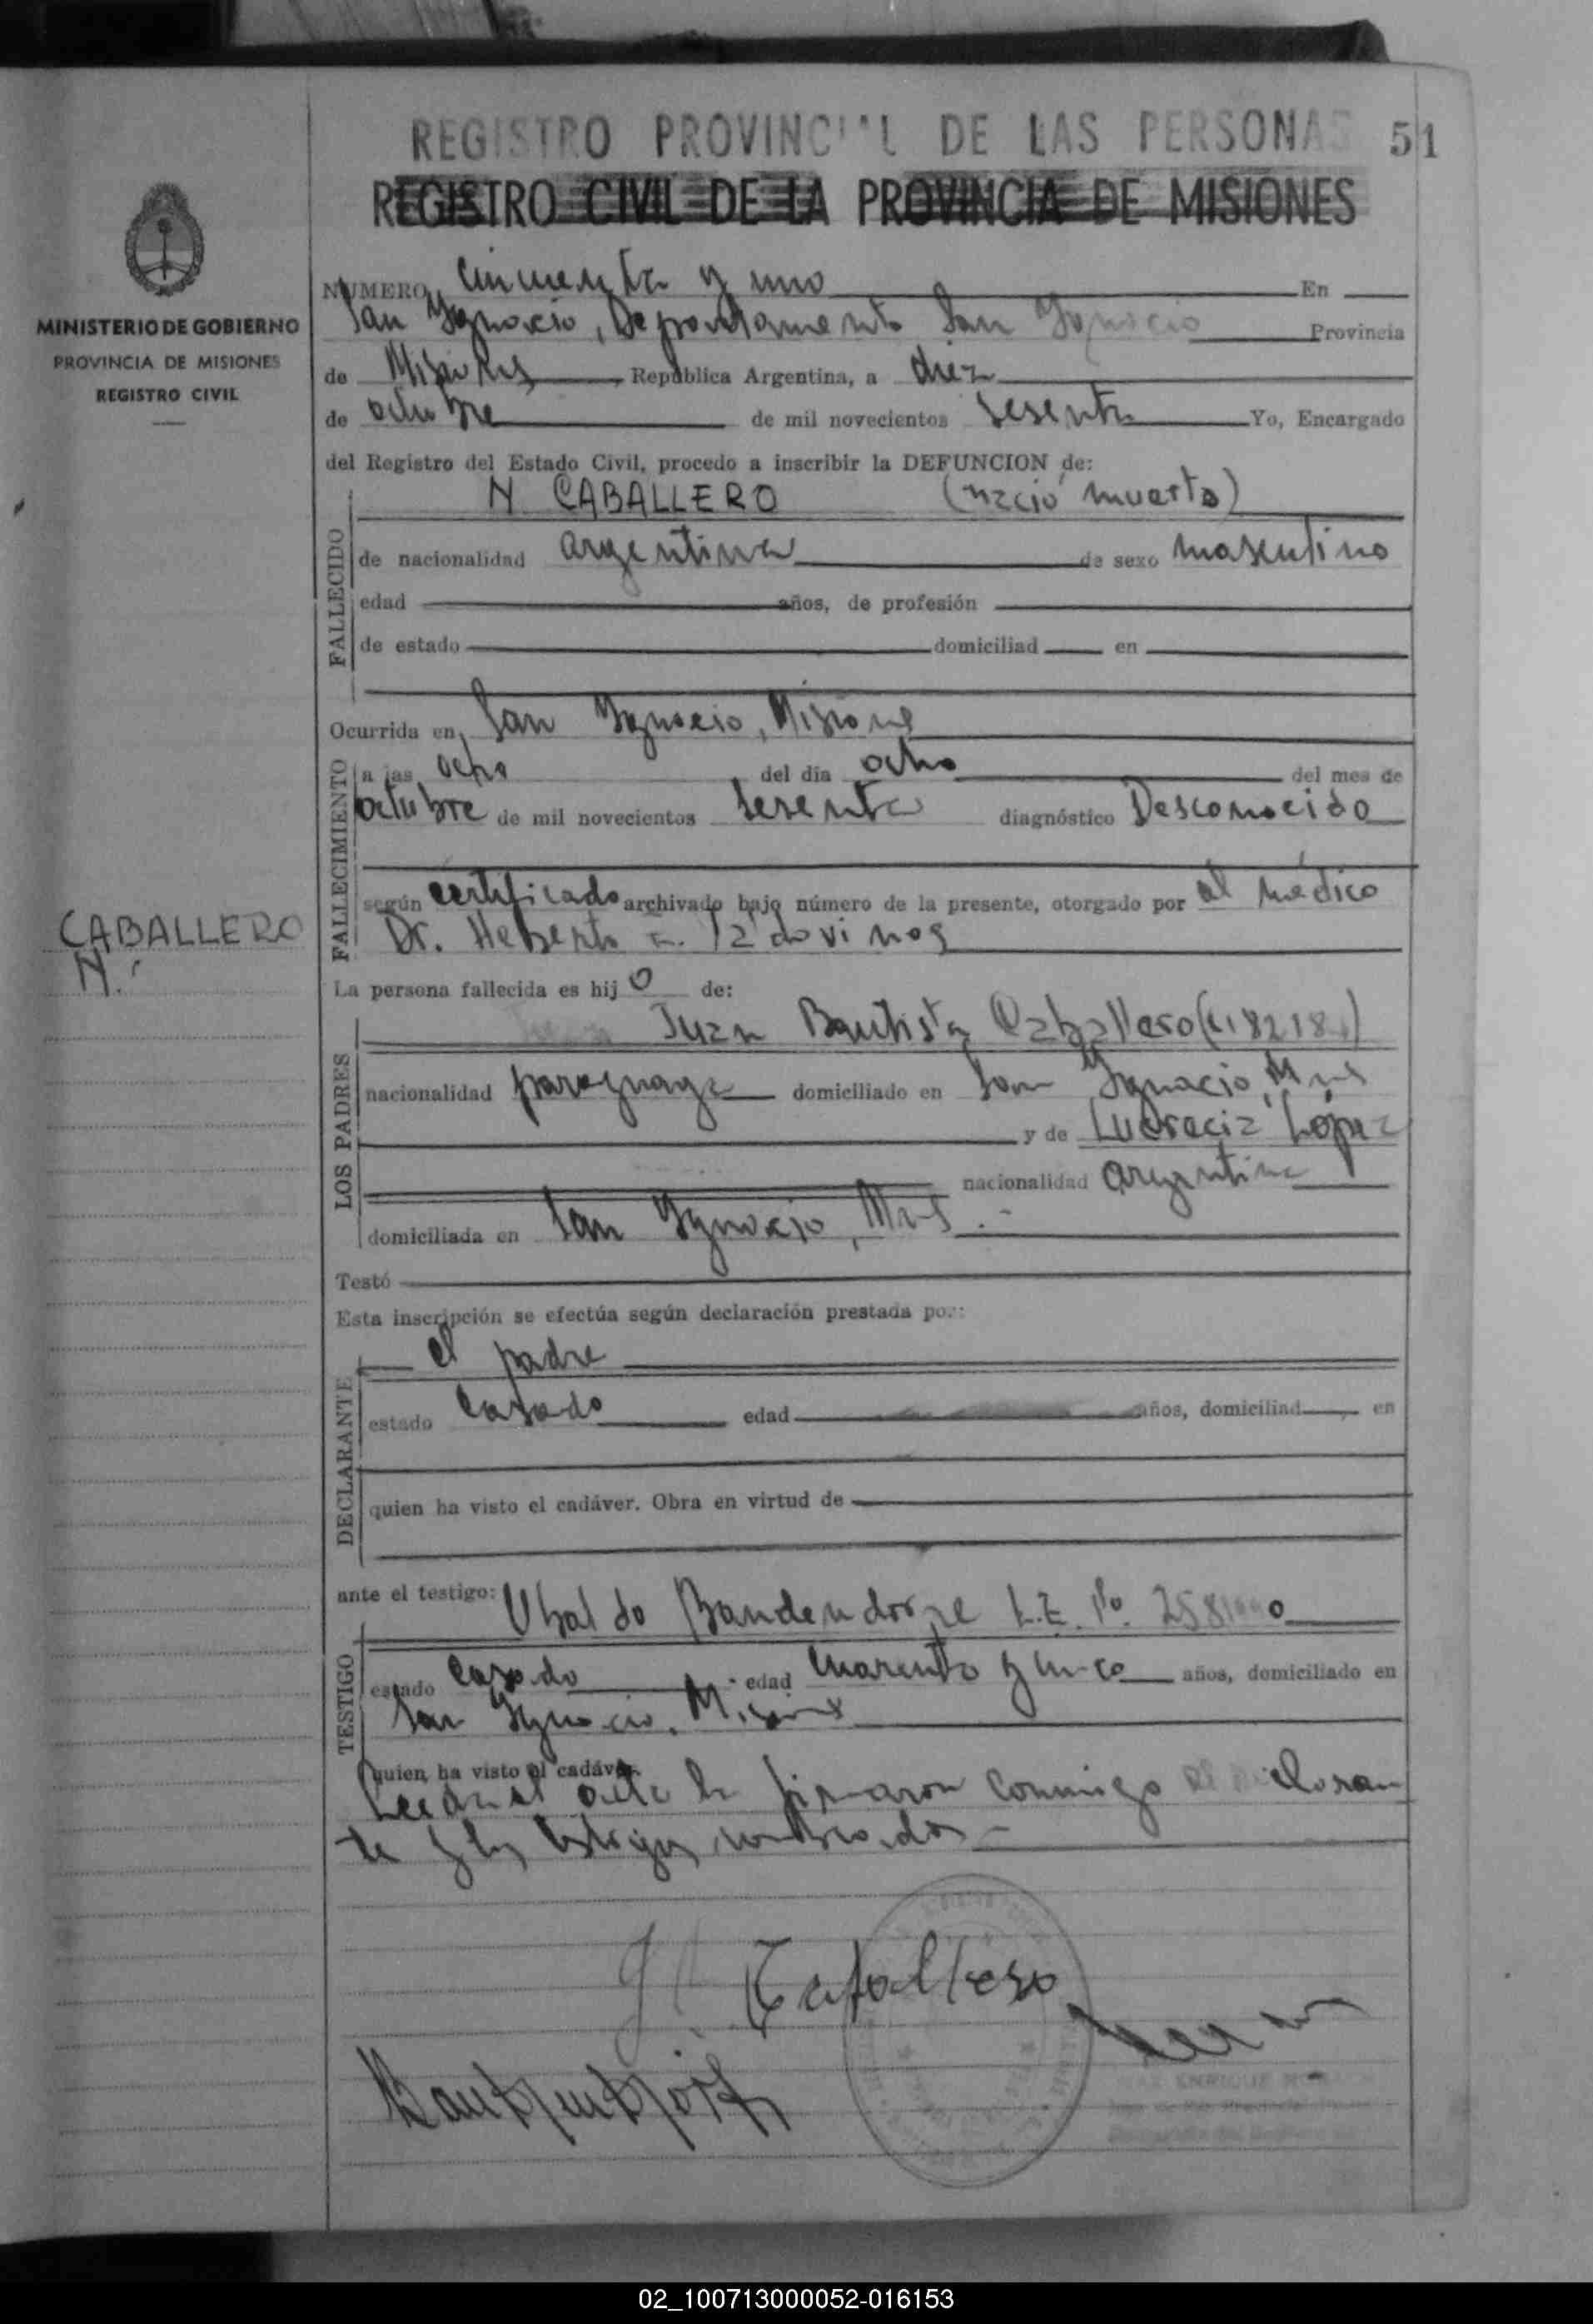 REGISTRO PROVINCIAL DE LAS PERSONAS 51
REGISTRO CIVIL DE LA PROVINCIA DE MISIONES
MINISTERIO DE GOBIERNO
PROVINCIA DE MISIONES
REGISTRO CIVIL
NUMERO cincuenta y uno En
San Ygnacio, Departamento San Ygnacio Provincia
de Misiones República Argentina, a diez
de octubre de mil novecientos sesenta Yo, Encargado
del Registro del Estado Civil, procedo a inscribir la DEFUNCION de:
N CABALLERO (nació muerto)
FALLECIDO
de nacionalidad argentina de sexo masculino
edad años, de profesión
de estado domiciliad en
Ocurrida en San Ygnacio, Misiones
FALLECIMIENTO
a las ocho del día ocho del mes de
octubre de mil novecientos sesenta diagnóstico Desconocido
según certificado archivado bajo número de la presente, otorgado por el médico
Dr. Heberto
CABALLERO
N.
La persona fallecida es hij o de:
LOS PADRES
Juan Bautista Caballero
nacionalidad paraguaya domiciliado en San Ygnacio, Mnes
y de Lucrecia López
nacionalidad argentina
domiciliada en San Ygnacio, Mns .-
Testó
Esta inscripción se efectúa según declaración prestada por:
DECLARANTE
el padre
estado casado edad años, domiciliad en
quien ha visto el cadáver. Obra en virtud de
ante el testigo: Ubaldo L.E. No.
TESTIGO
estado casado edad cuarenta y cinco años, domiciliado en
San Ygnacio, Misiones
quien ha visto el cadáver.
Leida el acta la firmaron conmigo el declaran
te y los testigos nombrados -
Caballero
ENRIQUE
02_100713000052-016153